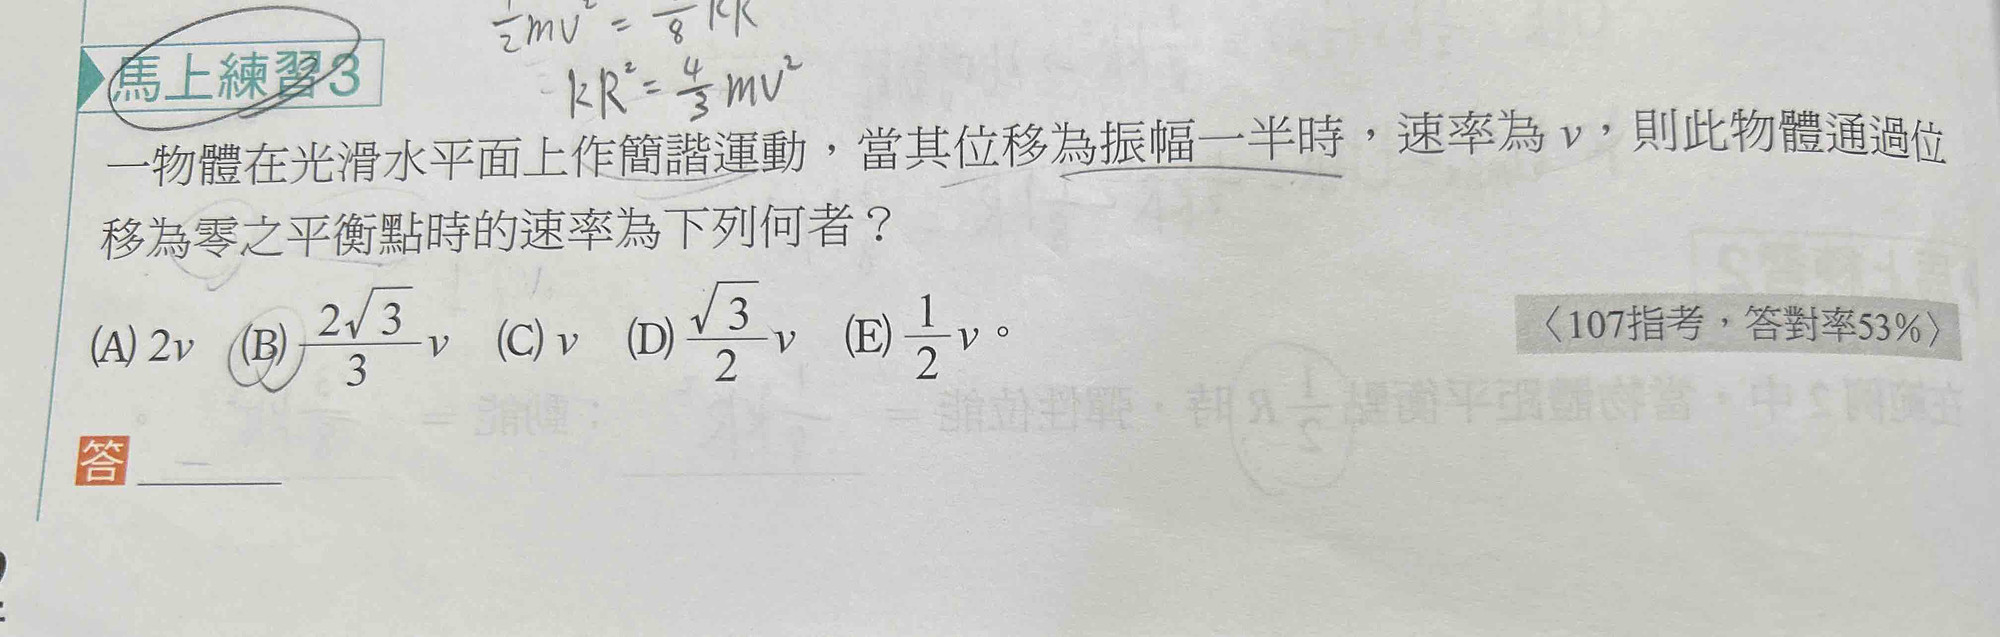 ½mv² = 
kR² = 4/3 mv²
馬上練習3
一物體在光滑水平面上作簡諧運動，當其位移為振幅一半時，速率為 v，則此物體通過位
移為零之平衡點時的速率為下列何者？
(A) 2v (B) 2√3/3 v (C) v (D) √3/2 v (E) 1/2 v。
〈107指考，答對率53%〉
答